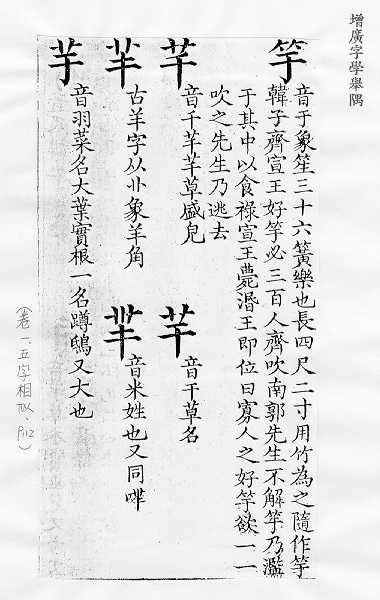 增廣字學舉隅
竽
音于象笙三十六簧樂也長四尺二寸用竹為之隨作竽
韓子齊宣王好竽必三百人齊吹南郭先生不解竽乃濫
于其中以食祿宣王薨湣王即位曰寡人之好竽欲一一
吹之先生乃逃去
芊
音千芊芊草盛皃
芉
音干草名
𦍌
古羊字从丱象羊角
羋
音米姓也又同哶
芋
音羽菜名大葉實根一名蹲鴟又大也
(卷一、五字相似、P112)